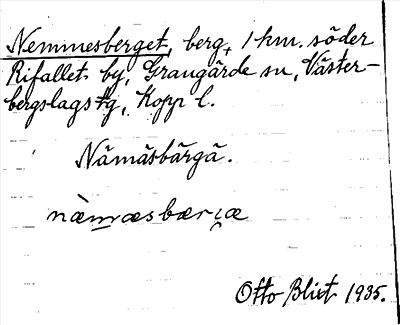 Nemmesberget, berg, 1 km. söder
Rifallet by, Grangärde sn, Väster-
bergslags tg, Kopp l.
Nämäsbärgä.
nàm̲æsbærɩ̯æ
Otto Blixt 1935.